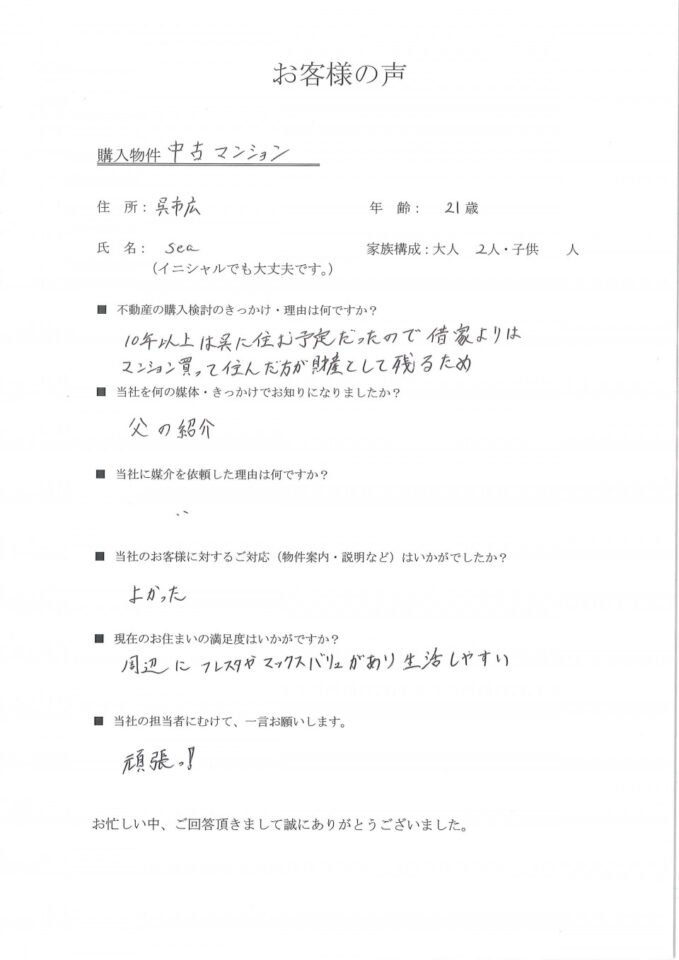 お客様の声
購入物件 中古マンション
住 所： 呉市広 年 齢： 21歳
氏 名： sea 家族構成：大人 2人・子供 人
（イニシャルでも大丈夫です。）
■ 不動産の購入検討のきっかけ・理由は何ですか？
10年以上は呉に住む予定だったので借家よりは
マンション買って住んだ方が財産として残るため
■ 当社を何の媒体・きっかけでお知りになりましたか？
父の紹介
■ 当社に媒介を依頼した理由は何ですか？
〃
■ 当社のお客様に対するご対応（物件案内・説明など）はいかがでしたか？
よかった
■ 現在のお住まいの満足度はいかがですか？
周辺にフレスタやマックスバリュがあり生活しやすい
■ 当社の担当者にむけて、一言お願いします。
頑張っ!
お忙しい中、ご回答頂きまして誠にありがとうございました。